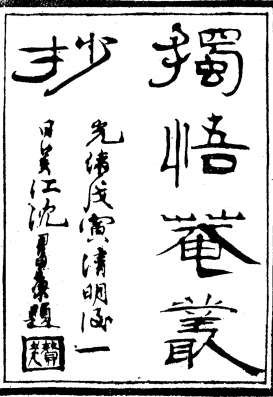 獨悟菴叢
抄
光緒戊寅清明後一
日吳江沈題